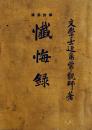 文學士近角常觀師著
懺悔録